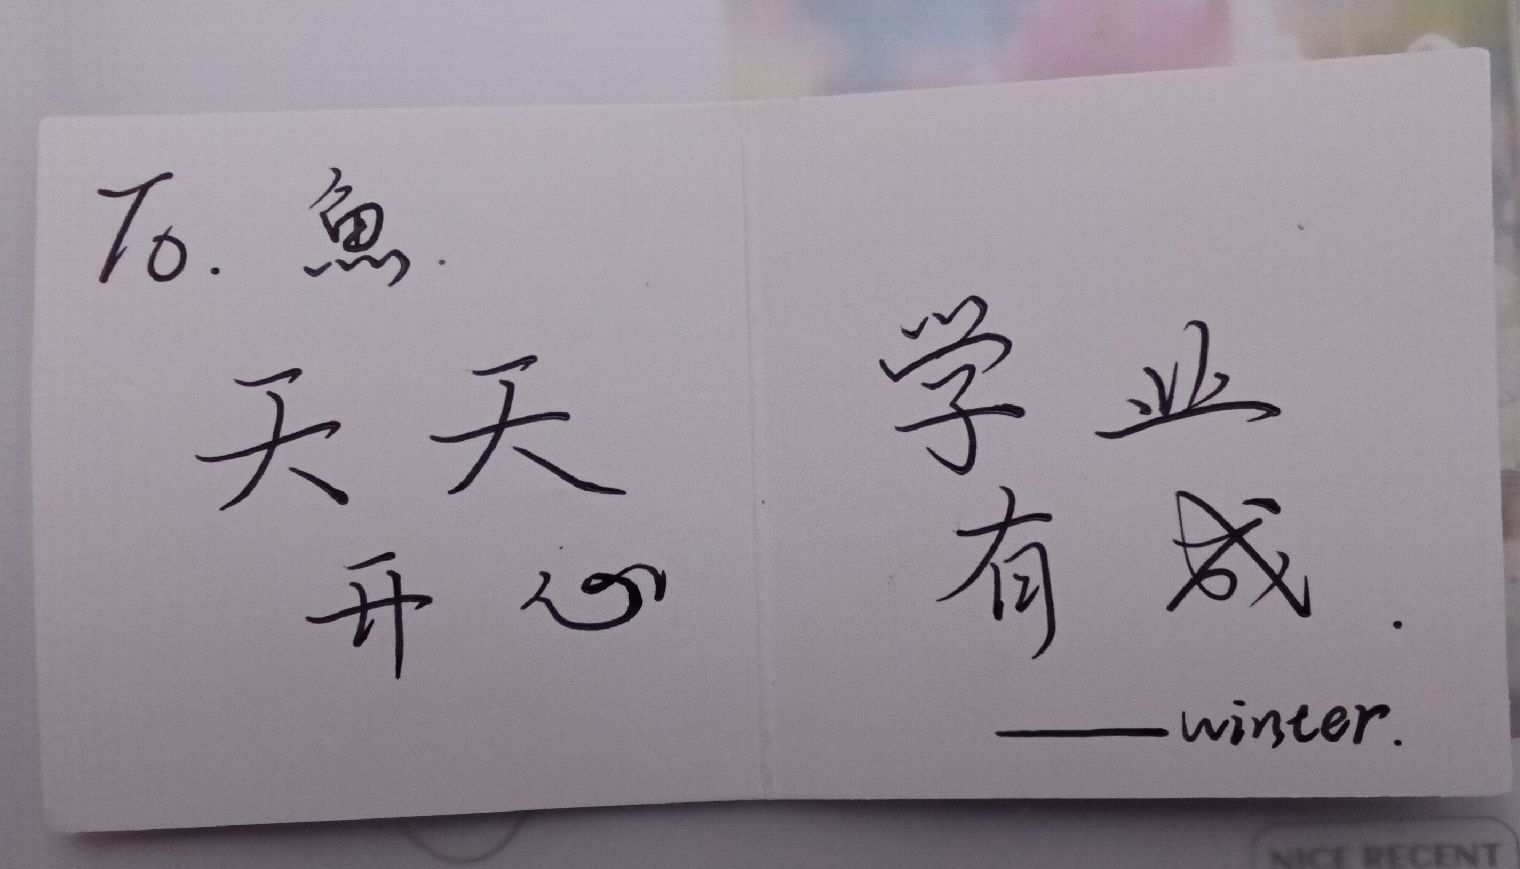 To. 魚.
天天
开心
学业
有成.
——winter.
NICE RECENT